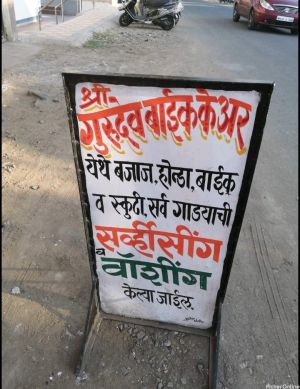 श्री
गुरुदेव बाईक केअर
येथे बजाज, होन्डा, बाईक
व स्कुटी, सर्व गाडयाची
सर्व्हीसींग
व
वॉशींग
केल्या जाईल.
PickerOnline